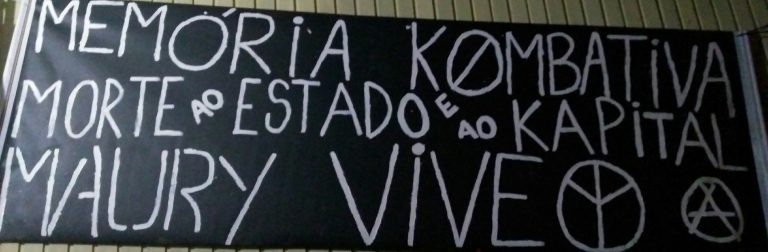 MEMÓRiA KØMBATiVA
MORTE AO ESTADO E AO KAPiTAL
MAURY ViVE Ⓐ